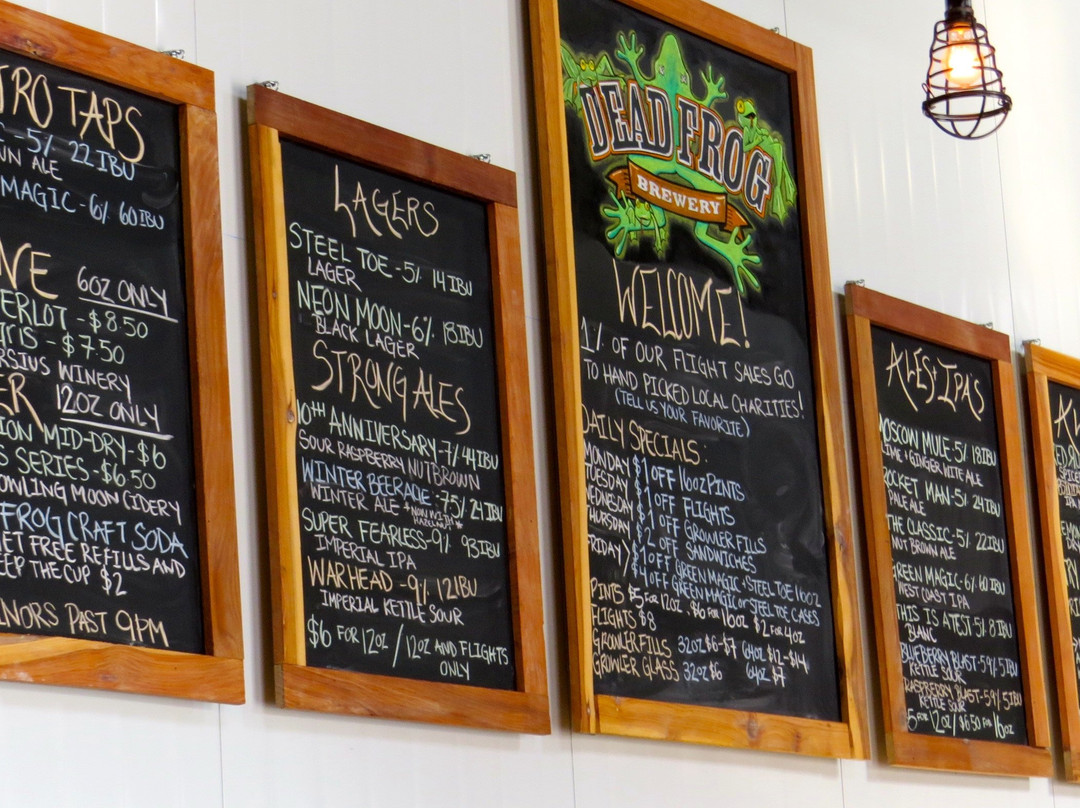 TRO TAPS
5% 22 IBU
UN ALE
MAGIC - 6% 60 IBU
6OZ ONLY
ERLOT - $8.50
- $7.50
RSIUS WINERY
ER 12OZ ONLY
ION MID-DRY - $6
S SERIES - $6.50
OWLING MOON CIDERY
FROG CRAFT SODA
ET FREE REFILLS AND
EEP THE CUP $2
NORS PAST 9PM
LAGERS
STEEL TOE - 5% 14 IBU
LAGER
NEON MOON - 6% 18 IBU
BLACK LAGER
STRONG ALES
10TH ANNIVERSARY - 7% 44 IBU
SOUR RASPBERRY NUTBROWN
WINTER BEERADE - 7.5% 24 IBU
WINTER ALE
SUPER FEARLESS - 9% 93 IBU
IMPERIAL IPA
WARHEAD - 9% 12 IBU
IMPERIAL KETTLE SOUR
$6 FOR 12OZ / 12OZ AND FLIGHTS
ONLY
DEAD FROG
BREWERY
WELCOME!
1% OF OUR FLIGHT SALES GO
TO HAND PICKED LOCAL CHARITIES!
(TELL US YOUR FAVORITE)
DAILY SPECIALS:
MONDAY $1 OFF 16OZ PINTS
TUESDAY $1 OFF FLIGHTS
WEDNESDAY $1 OFF GROWLER FILLS
THURSDAY $2 OFF SANDWICHES
FRIDAY > $1 OFF GREEN MAGIC + STEEL TOE 16OZ
$4 OFF GREEN MAGIC OR STEEL TOE CASES
PINTS $5 FOR 12OZ $6 FOR 16OZ $2 FOR 4OZ
FLIGHTS $8
GROWLER FILLS 32OZ $6-$7 64OZ $12-$14
GROWLER GLASS 32OZ $6 64OZ $7
ALES + IPAS
MOSCOW MULE - 5% 18 IBU
LIME + GINGER WITE ALE
ROCKET MAN - 5% 24 IBU
PALE ALE
THE CLASSIC - 5% 22 IBU
NUT BROWN ALE
GREEN MAGIC - 6% 60 IBU
WEST COAST IPA
THIS IS A TEST - 5% 8 IBU
BLANC
BLUEBERRY BLAST - 5.9% 5 IBU
KETTLE SOUR
RASPBERRY BLAST - 5.9% 5 IBU
KETTLE SOUR
5 FOR 12OZ / $6.50 FOR 16OZ